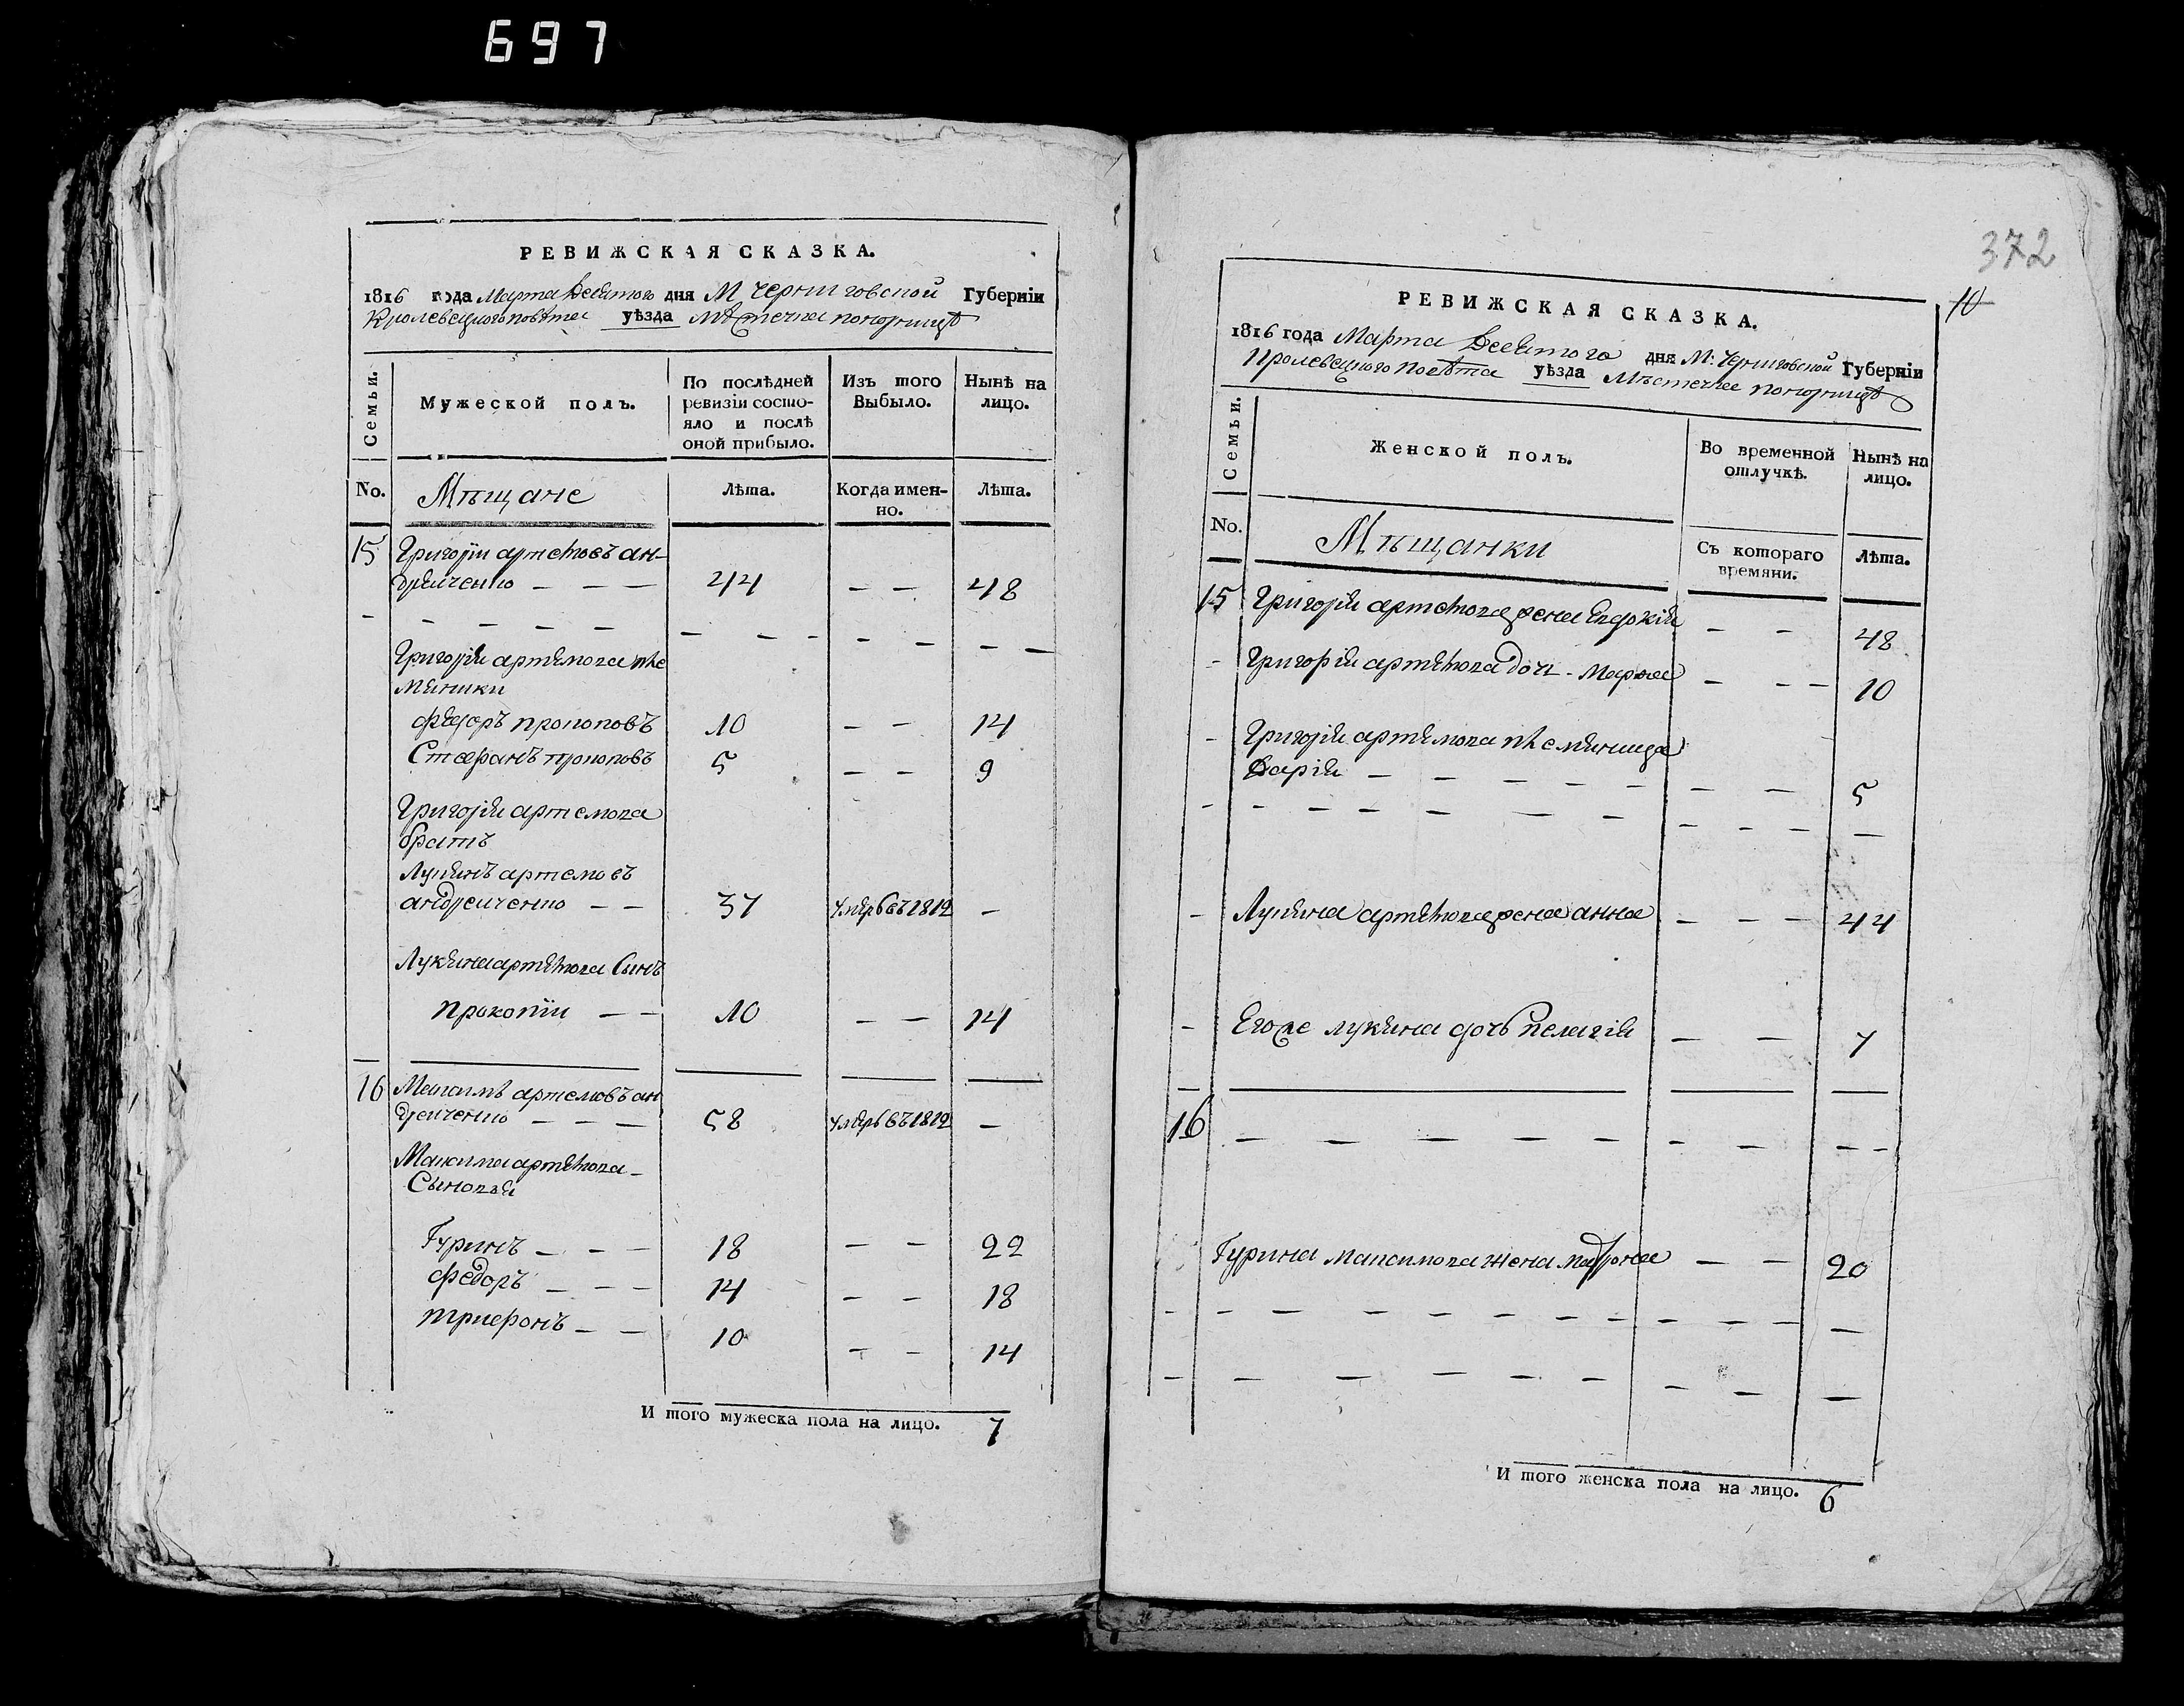 697
РЕВИЖСКАЯ СКАЗКА.
1816 года Марта Девятого дня М Черниговской Губерніи
Кролевецкого повѣта уѣзда Мѣстечка понорницѣ
Семьи.
Мужеской полъ.
По послѣдней ревизіи состояло и послѣ оной прибыло.
Изъ того Выбыло.
Нынѣ на лицо.
No. Мѣщане Лѣта. Когда именно. Лѣта.
15 Григорій артемовъ ан-
дрейченко — — — 44 — — 48
Григорія артемова пле
мяники
Федоръ прокоповъ 10 — — 14
Стефанъ прокоповъ 5 — — 9
Григорія артемова
братъ
Лукянъ артемовъ
андрейченко — — 37 умеръ въ 1812 —
Лукяна артемова Сынъ
прокопій — — 10 — — 14
16 Максимъ артемовъ ан
дрейченко — — — 58 умеръ въ 1812 —
Максима артемова
Сыновья
Гуринъ — — — 18 — — 22
Федоръ — — — 14 — — 18
трифонъ — — 10 — — 14
И того мужеска пола на лицо. 7
372
10
РЕВИЖСКАЯ СКАЗКА.
1816 года Марта Девятого дня М: Черниговской Губерніи
Кролевецкого повѣта уѣзда Мѣстечка понорницѣ
Семьи.
Женской полъ.
Во временной отлучкѣ.
Нынѣ на лицо.
No. Мѣщанки Съ котораго времяни. Лѣта.
15 Григорія артемова жена Евдокія — — 48
- Григорія артемова дочь - Марфа — — — 10
- Григорія артемова племяница
Дарія — — — — — — 5
- Лукяна артемова жена анна — — — 44
- Егоже лукяна дочь пелагія — — 7
16 — — — — — — — — —
Гурина максимова жена матрона — — 20
И того женска пола на лицо. 6